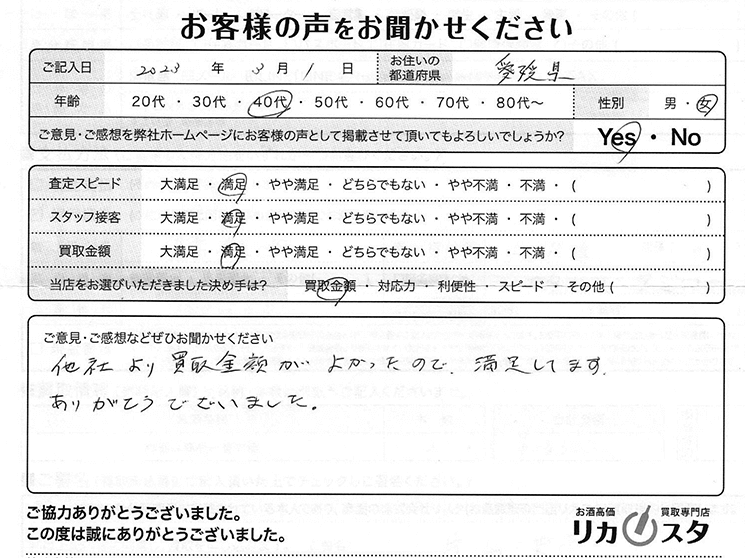 お客様の声をお聞かせください
ご記入日 2023 年 3 月 1 日 お住いの都道府県 愛媛県
年齢 20代・30代・40代・50代・60代・70代・80代〜 性別 男・女
ご意見・ご感想を弊社ホームページにお客様の声として掲載させて頂いてもよろしいでしょうか? Yes・No
査定スピード 大満足・満足・やや満足・どちらでもない・やや不満・不満・( )
スタッフ接客 大満足・満足・やや満足・どちらでもない・やや不満・不満・( )
買取金額 大満足・満足・やや満足・どちらでもない・やや不満・不満・( )
当店をお選びいただきました決め手は? 買取金額・対応力・利便性・スピード・その他( )
ご意見・ご感想などぜひお聞かせください
他社より買取金額がよかったので、満足してます。
ありがとうございました。
ご協力ありがとうございました。
この度は誠にありがとうございました。
お酒高価 買取専門店
リカスタ